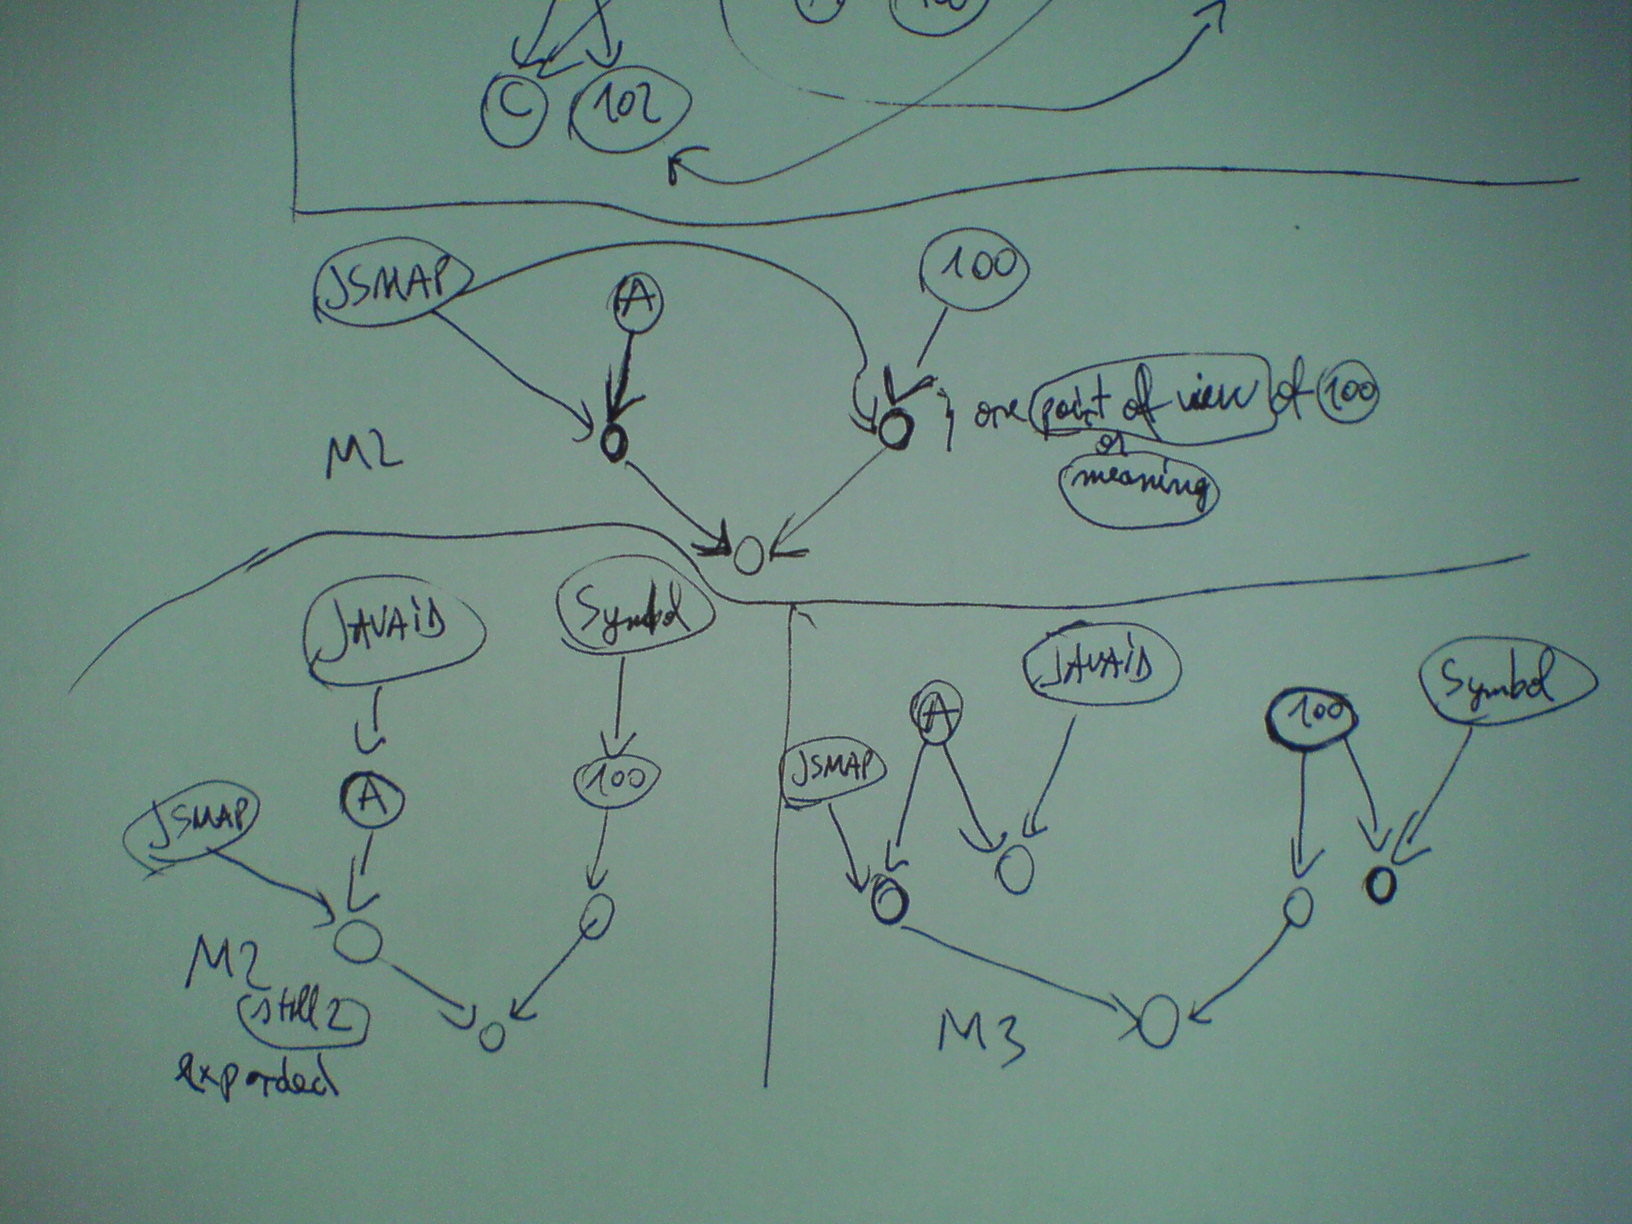 C 102
JSMAP A 100
one point of view of 100
or
meaning
M2
JAVAID Symbol
A 100
JSMAP
M2
still 2
expanded
JAVAID Symbol
A 100
JSMAP
M3